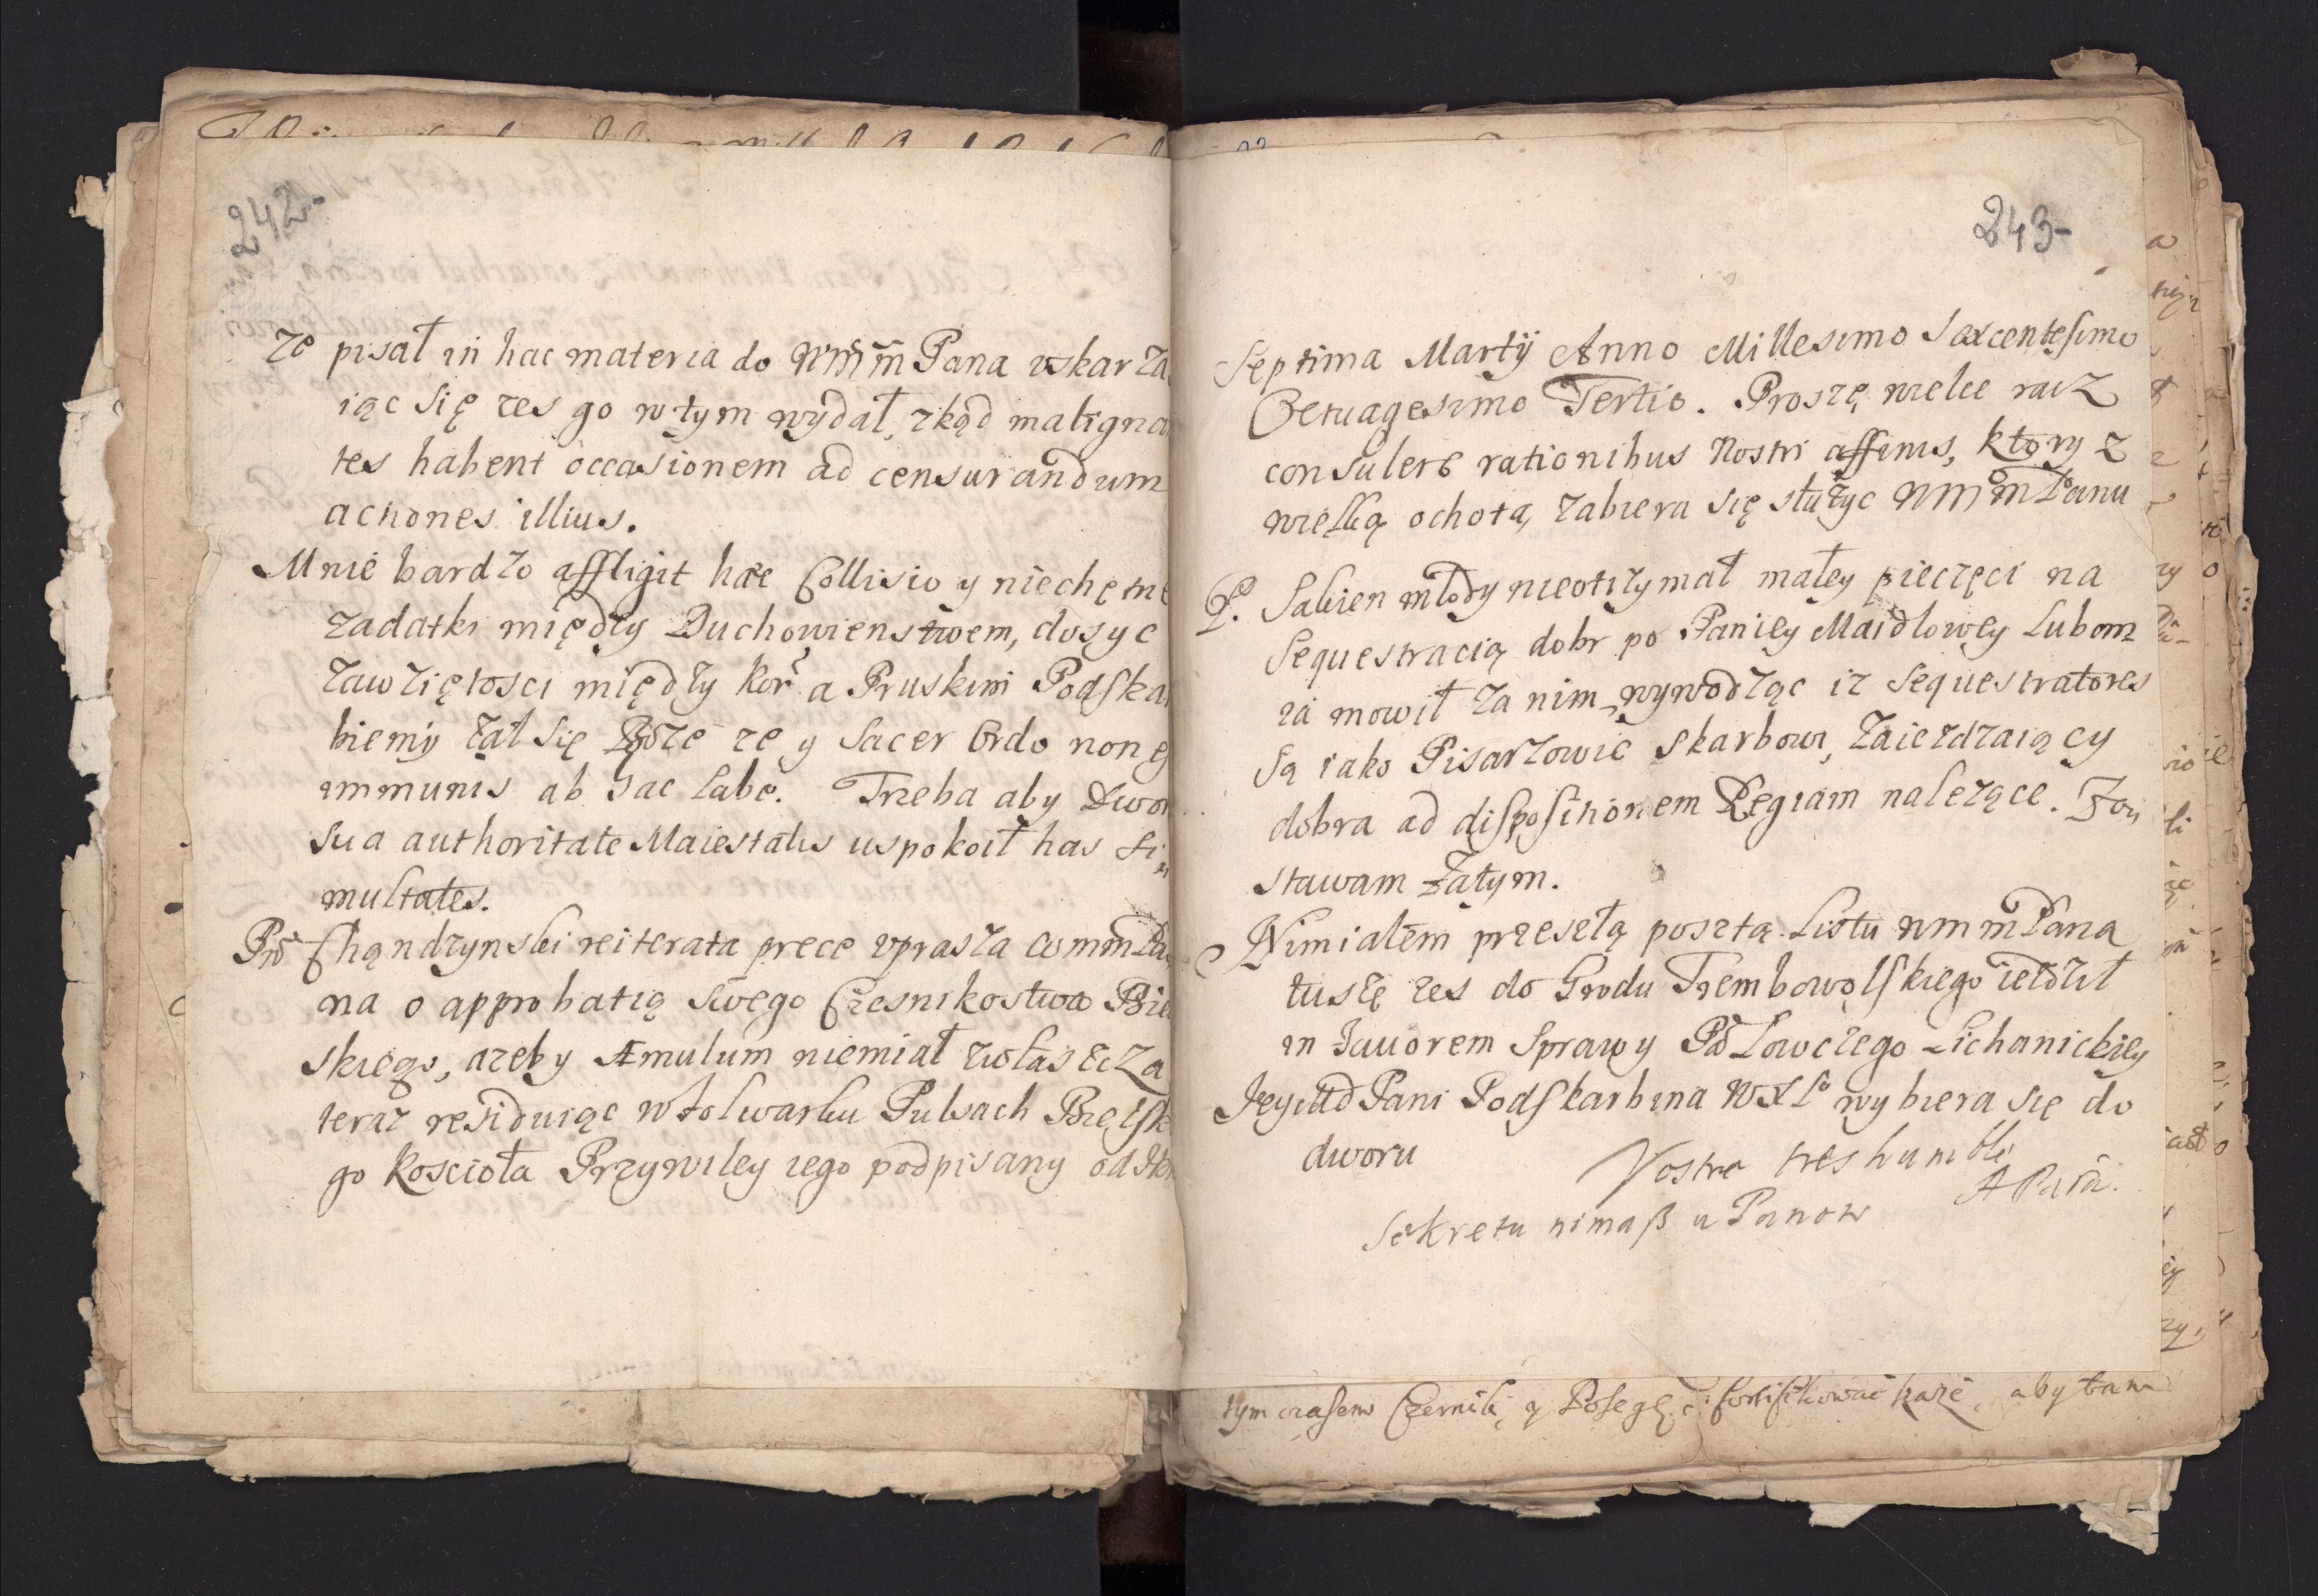 242-
że pisał in hac materia do WMM Pana vskarza
iąc się zes go w tym wydał, zkąd maligna
tes habent occasionem ad censurandum
actiones illius.
Mnie bardzo affligit hæc Collisio y niechętne
zadatki między Duchowienstwem, dosyc
zawziętosci między Kor a Pruskim Podska
biemy żal się Boże ze y Sacer Ordo non e
immunis ab hac labe. Trzeba aby Dwor
sua authoritate Maiestatis uspokoił has si
multates.
Pan Chądzynski reiterata prece vprasza WMM Pa
na o approbatią swego Czesnikostwa Bie
skiego, azeby Æmulum niemiał zwłaszcza
teraz residuiąc w folwarku Pulsach Bielsk
go Koscioła Przywiley iego podpisany od
243-
Septima Martij Anno Millesimo Sexcentesimo
Octuagesimo Tertio. Proszę wielce racz
consulere rationibus Nostri affinis, ktory z
wielką ochotą zabiera się służyc WMM Panu
P. młody nieotrzymał małey pieczęci na
Sequestracią dobr po Paniey Maidlowey Lubom
ia mowił za nim wywodząc iz Sequestratores
są iako Pisarzowie skarbowi, zaiezdzaiący
dobra ad dispositionem Regiam nalezące. Zo
stawam zatym.
Nimiałem przeszłą posztą Listu WMM Pana
tuszę zes do Grodu Trembowolskiego iezdził
in favorem sprawy Pa Łowczego Lichanickiey
Jeymd Pani Podskarbina WXL wybiera się do
dworu
Vostre tres humble
A Para.
Sekretu nimaß u Panow
tym czasem Czernik y Posegę fortifikować każe, aby tam